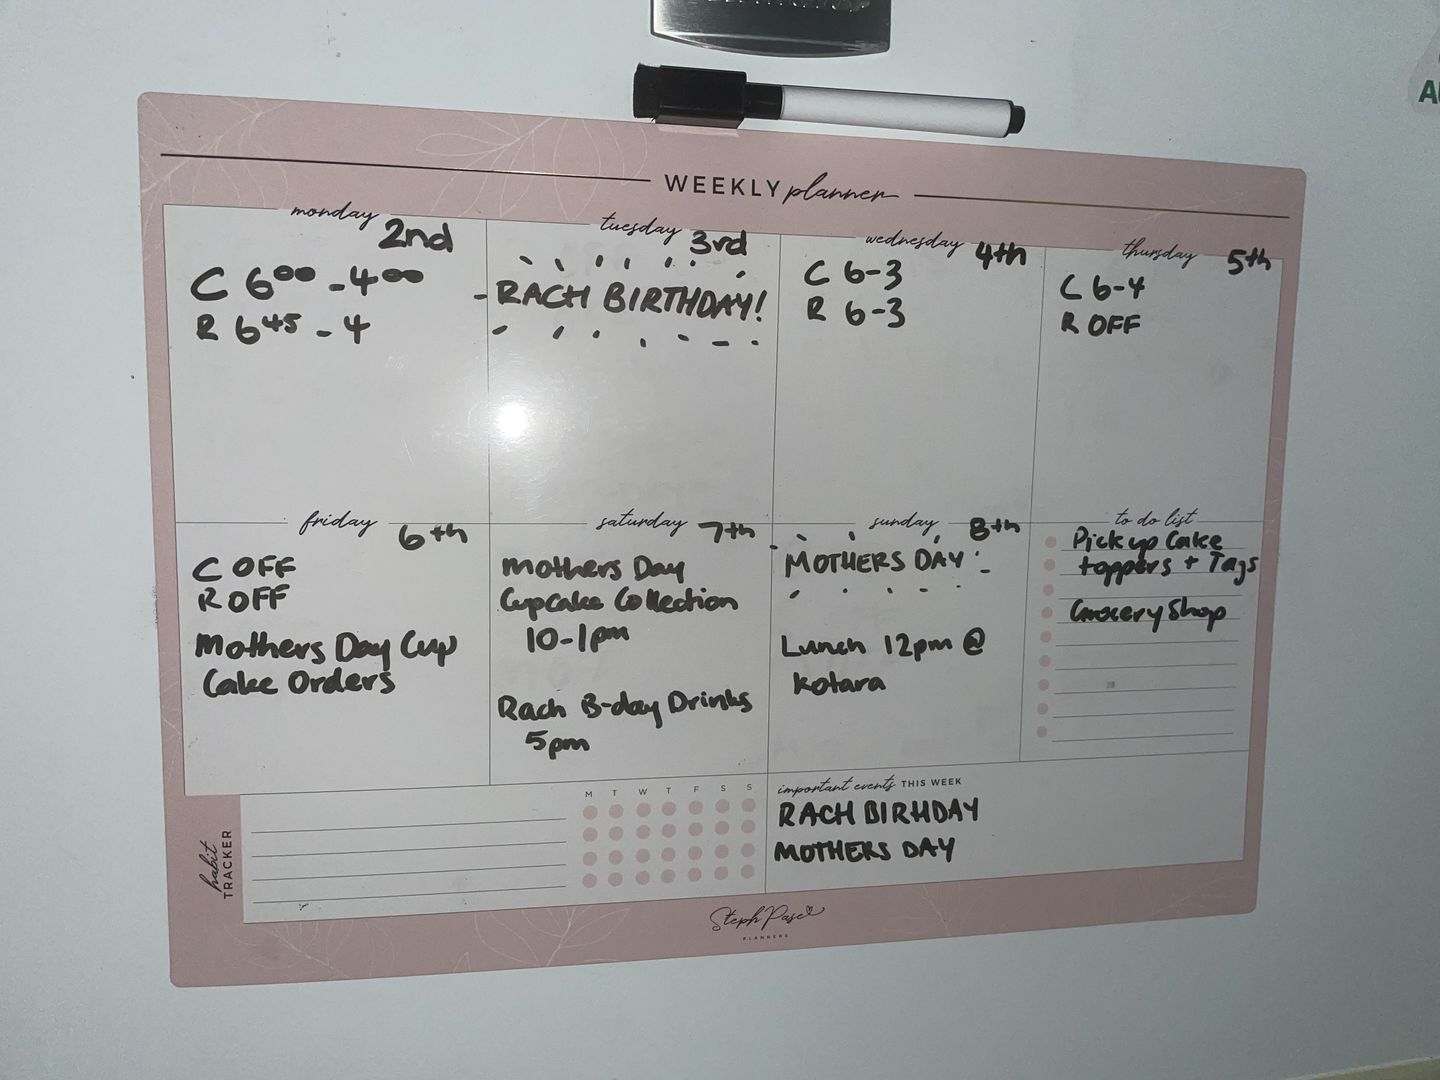 WEEKLY planner
monday 2nd
C 6⁰⁰ - 4⁰⁰
R 6⁴⁵ - 4
tuesday 3rd
RACH BIRTHDAY!
wednesday 4th
C 6-3
R 6-3
thursday 5th
C 6-4
R OFF
friday 6th
C OFF
R OFF
Mothers Day Cup
Cake Orders
saturday 7th
Mothers Day
Cupcake Collection
10-1pm
Rach B-day Drinks
5pm
sunday 8th
MOTHERS DAY
Lunch 12pm @
Kotara
to do list
Pick up Cake
toppers + Tags
Grocery Shop
habit TRACKER
M T W T F S S
important events THIS WEEK
RACH BIRHDAY
MOTHERS DAY
Steph Pase
PLANNERS